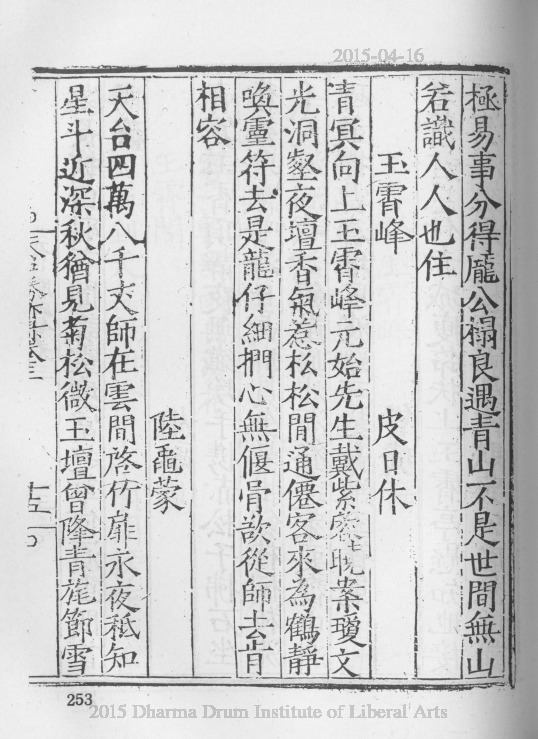 2015-04-16
極易事分得龐公襑良遇青山不是世間無山
若識人人也住
玉霄峰
皮日休
青冥向上玉霄峰元始先生戴紫蓉曉案瓊文
光洞壑夜壇香氣惹松松間通僊客來為鶴靜
喚靈符去是龍仔細捫心無偃骨欲從師去肯
相容
陸龜蒙
天台四萬八千丈師在雲間啓竹扉永夜秪知
星斗近深秋猶見菊松微玉壇曾降青旄節雪
十五
253
2015 Dharma Drum Institute of Liberal Arts